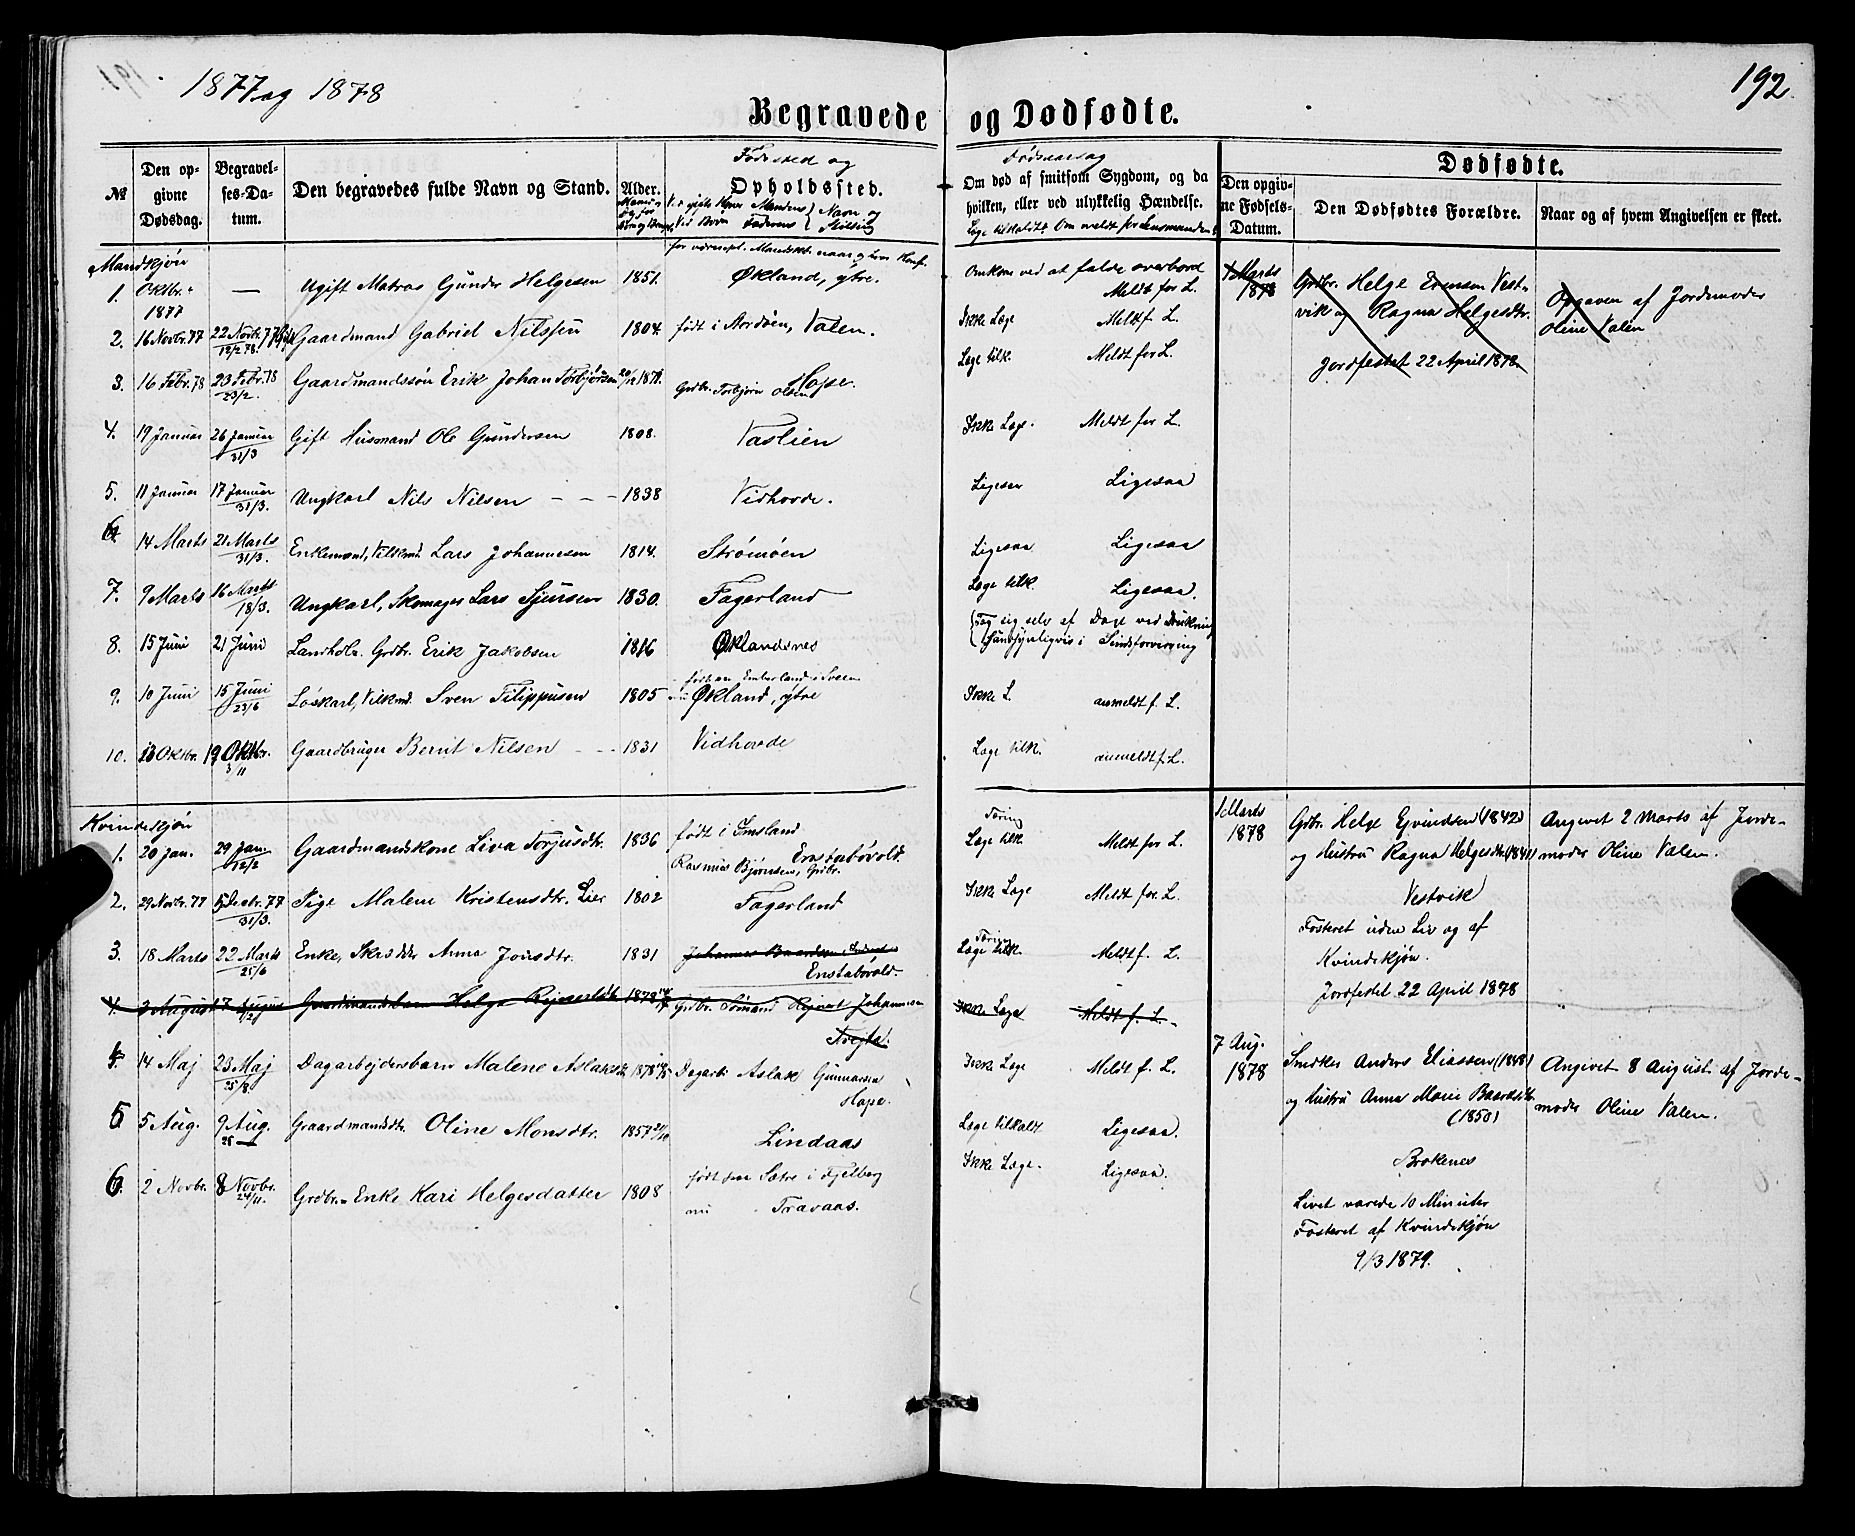 1877 og 1878
192.
Begravede og Dødfødte.
№
Den opgivne Dødsdag.
Begravelses-Datum.
Den begravedes fulde Navn og Stand.
Alder.
Fødested og
Opholdssted.
V. gifte Koner Mandens Navn og
Ved Børn Faderens Stilling
Dødsaarsag
Om død af smitsom Sygdom, og da hvilken, eller ved ulykkelig Hændelse.
Læge tilkaldt? Om meldt for Lensmanden?
Dødfødte.
Den opgivne Fødsels-Datum.
Den Dødfødtes Forældre.
Naar og af hvem Angivelsen er skeet.
Mandkjøn
1. Oktbr. 1877 — Ugift Matros Gunder Helgesen 1851. Økland, ytre. Omkom ved at falde overbord Meldt for L.
2. 16 Novbr. 77 22 Novbr. 77 12/2 78. Gaardmand Gabriel Nilssen 1804. født i Nordøen, Valen. Ikke Læge Meldt f. L.
3. 16 Febr. 78 23 Febr. 78 23/2. Gaardmandssøn Erik Johan Torbjørsen 20/12 1871. Grdbr. Torbjørn Olsen Hope. Læge tilk. Meldt for L.
4. 19 Januar 26 Januar 31/3 Gift Husmand Ole Gundersen 1808. Vaslien Ikke Læge. Meldt for L.
5. 11 Januar 17 Januar 31/3. Ungkarl Nils Nilsen - - - 1838 Vidhovde. Ligesaa Ligesaa
6. 14 Marts 21 Marts 31/3. Enkemand, Vilkmd. Lars Johannesen 1814. Strømøen Ligesaa Ligesaa
7. 9 Marts 16 Marts 18/3. Ungkarl, Skomager Lars Sjursen 1830. Fagerland Læge tilk. Ligesaa.
8. 15 Juni 21 Juni Landholr. Grdbr. Erik Jakobsen 1816 Øklandsnes Tog sig selv af Dage ved Drukning Sandsynligvis i Sindsforvirring
9. 10 Juni 15 Juni 23/6 Løskarl, Vilkmd. Sven Filippusen 1805 født paa Emberland i Sveen Økland, ytre Ikke L. anmeldt f. L.
10. 13 Oktbr. 19 Oktbr. 3/11 Gaardbruger Bernt Nilsen - - - 1831 Vidhovde Læge tilk. anmeldt f. L.
1 Marts 1878
Grdbr. Helge Evensen Vestvik og Ragna Helgesdtr.
Jordfæstet 22 April 1878.
Opgaven af Jordemoder Oline Valen
Kvindekjøn
1. 20 Jan. 29 Jan. 12/2 Gaardmandskone Liva Torjusdtr. 1836 født i Imsland Rasmus Bjørnsen, Grdbr. Enstabøvold. Tæring Læge tilk. Meldt for L.
2. 29 Novbr. 77 5 Decbr. 77 31/3. Pige Malene Kristensdtr. Lier 1802 Fagerland Ikke Læge Meldt for. L.
3. 18 Marts 22 Marts 25/6 Enke, Skrædder Anna Jonsdtr. 1831 Johannes Baardsen Enstabøvold. Tæring Læge tilk. Meldt f. L.
4. 3 August 7 August Gaardmandsbarn Helga Rejnertsdtr. 1878 Grdbr. Sømand Rejnert Johannesen Trejte. Ikke Læge Meldt f. L.
4. 14 Maj 23 Maj 25/8. Dagarbejdersbarn Malene Aslaksdtr. 1878 Dagarb. Aslak Gunnarsen Hope. Ikke Læge Meldt f. L.
5 5 Aug. 9 Aug. 25 Gaardmandsdtr. Oline Monsdtr. 1857 Lindaas Læge tilkaldt Ligesaa.
6. 2 Novbr. 8 Novbr. 24/11. Grdbr. Enke Kari Helgesdatter 1808 født paa Sætre i Fjelberg nu Travaas. Ikke Læge. Ligesaa.
1 Marts 1878
Grdbr. Helge Ejvindsen (1842)
og Hustru Ragna Helgesdtr. (1841)
Vestvik
Fosteret uden Liv og af
Kvindekjøn.
Jordfestet 22 April 1878
Angivet 2 Marts af Jorde-
moder Oline Valen.
7 Aug. 1878
Snedker Anders Eliassen (1848)
og Hustru Anna Marie Baardsdtr.
(1850)
Brokenes
Livet varede 10 Minuter
Fosteret af Kvindekjøn
9/3 1879.
Angivet 8 August af Jorde-
moder Oline Valen.